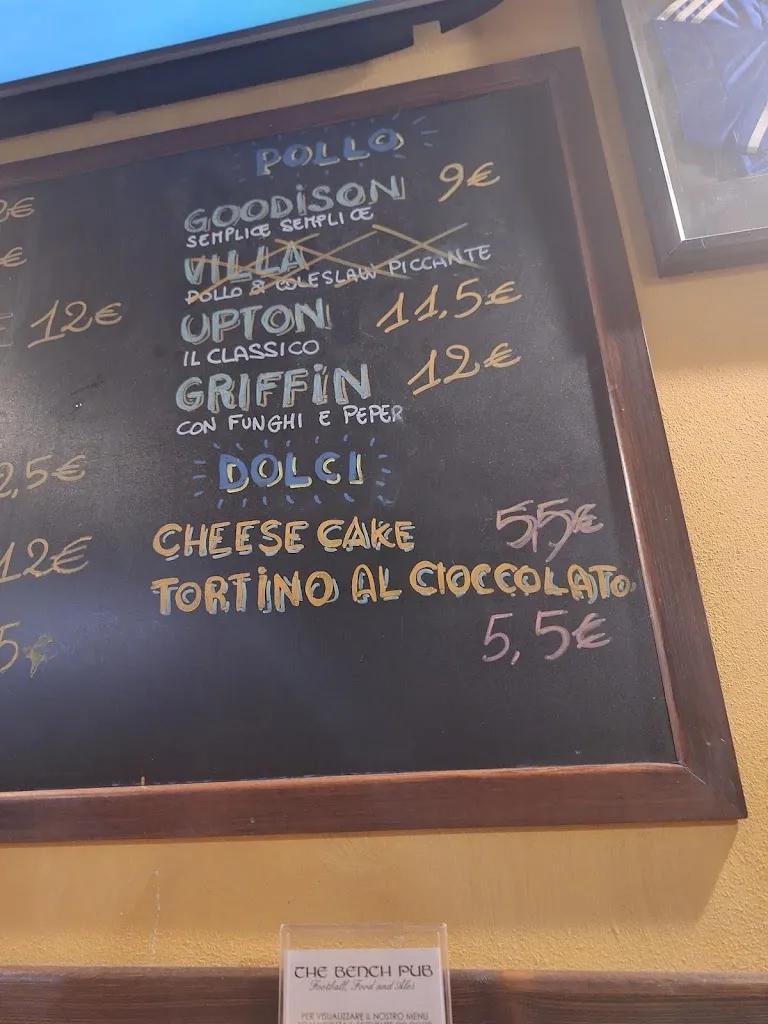 12€
POLLO
GOODISON 9€
SEMPLICE SEMPLICE
VILLA
POLLO & COLESLAW PICCANTE
UPTON 11,5€
IL CLASSICO
GRIFFIN 12€
CON FUNGHI E PEPER
DOLCI
CHEESE CAKE 5,5€
TORTINO AL CIOCCOLATO
5,5€
2,5€
12€
5€
THE BENCH PUB
Football, Food and Ales
PER VISUALIZZARE IL NOSTRO MENU